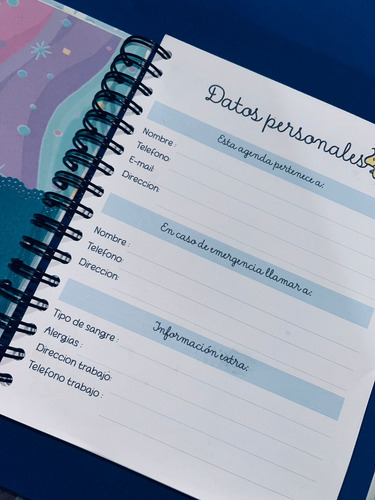 Datos personales
Esta agenda pertenece a:
Nombre :
Telefono:
E-mail:
Direccion:
En caso de emergencia llamar a:
Nombre :
Telefono:
Direccion:
Información extra:
Tipo de sangre :
Alergias :
Direccion trabajo:
Telefono trabajo :